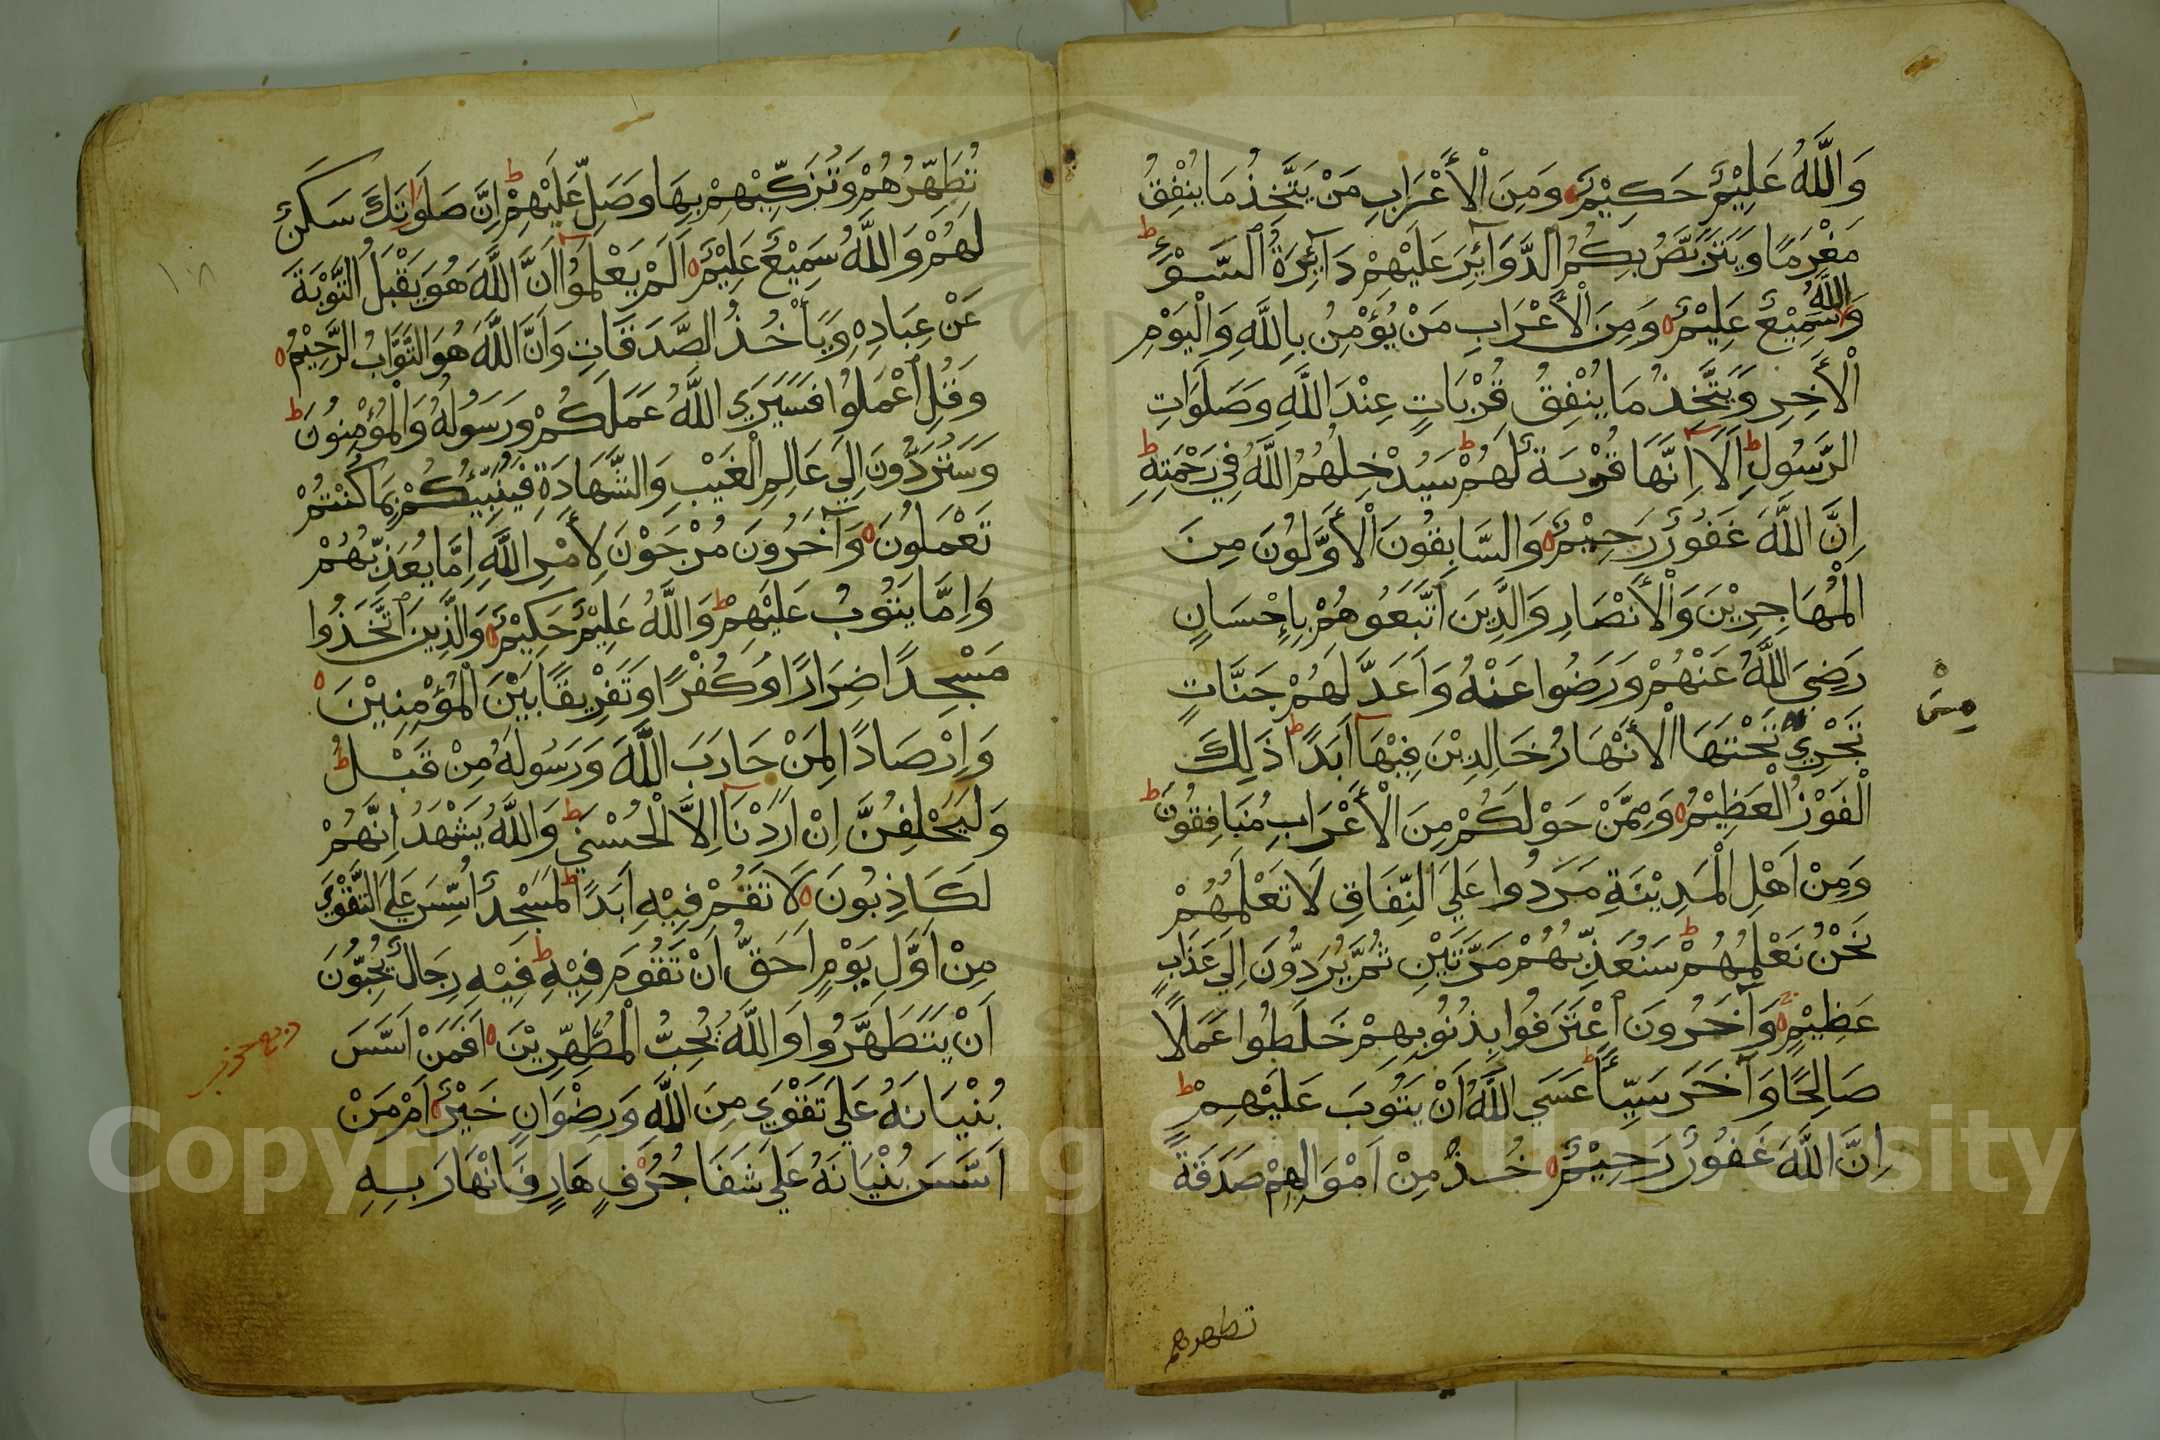 وَاللَّهُ عَلِيْمٌ حَكِيْمٌ وَمِنَ الْأَعْرَابِ مَنْ يَتَّخِذُ مَا يُنْفِقُ
مَغْرَمًا وَيَتَرَبَّصُ بِكُمُ الدَّوَآئِرَ عَلَيْهِمْ دَآئِرَةُ السَّوْءِ ط
وَاللَّهُ سَمِيْعٌ عَلِيْمٌ وَمِنَ الْأَعْرَابِ مَنْ يُؤْمِنُ بِاللَّهِ وَالْيَوْمِ
الْأَخِرِ وَيَتَّخِذُ مَا يُنْفِقُ قُرْبَاتٍ عِنْدَ اللَّهِ وَصَلَوَاتِ
الرَّسُولِ ط اَلَا اِنَّهَا قُرْبَةٌ لَهُمْ ط سَيُدْخِلُهُمُ اللَّهُ فِي رَحْمَتِهِ ط
اِنَّ اللَّهَ غَفُوْرٌ رَحِيْمٌ وَالسَّابِقُونَ الْأَوَّلُونَ مِنَ
الْمُهَاجِرِيْنَ وَالْأَنْصَارِ وَالَّذِينَ اتَّبَعُوهُمْ بِإِحْسَانٍ
رَضِيَ اللَّهُ عَنْهُمْ وَرَضُوا عَنْهُ وَاَعَدَّ لَهُمْ جَنَّاتٍ
تَجْرِي تَحْتَهَا الْأَنْهَارُ خَالِدِيْنَ فِيْهَآ اَبَدًا ط ذَلِكَ
مِنْ
الْفَوْزُ الْعَظِيْمُ وَمِمَّنْ حَوْلَكُمْ مِنَ الْأَعْرَابِ مُنَافِقُونَ ط
وَمِنْ اَهْلِ الْمَدِيْنَةِ مَرَدُوا عَلَى النِّفَاقِ لَا تَعْلَمُهُمْ
نَحْنُ نَعْلَمُهُمْ ط سَنُعَذِّبُهُمْ مَرَّتَيْنِ ثُمَّ يُرَدُّونَ اِلَى عَذَابٍ
عَظِيْمٍ وَآخَرُونَ اعْتَرَفُوا بِذُنُوبِهِمْ خَلَطُوا عَمَلًا
صَالِحًا وَآخَرَ سَيِّئًا ط عَسَى اللَّهُ اَنْ يَتُوبَ عَلَيْهِمْ ط
اِنَّ اللَّهَ غَفُوْرٌ رَحِيْمٌ خُذْ مِنْ اَمْوَالِهِمْ صَدَقَةً
تطهرهم
تُطَهِّرُهُمْ وَتُزَكِّيْهِمْ بِهَا وَصَلِّ عَلَيْهِمْ ط اِنَّ صَلَوَاتِكَ سَكَنٌ
لَهُمْ وَاللَّهُ سَمِيْعٌ عَلِيْمٌ اَلَمْ يَعْلَمُوآ اَنَّ اللَّهَ هُوَ يَقْبَلُ التَّوْبَةَ
١٠٨
عَنْ عِبَادِهِ وَيَأْخُذُ الصَّدَقَاتِ وَاَنَّ اللَّهَ هُوَ التَّوَّابُ الرَّحِيْمُ
وَقُلِ اعْمَلُوا فَسَيَرَى اللَّهُ عَمَلَكُمْ وَرَسُولُهُ وَالْمُؤْمِنُونَ ط
وَسَتُرَدُّونَ اِلَى عَالِمِ الْغَيْبِ وَالشَّهَادَةِ فَيُنَبِّئُكُمْ بِمَا كُنْتُمْ
تَعْمَلُونَ وَآخَرُونَ مُرْجَوْنَ لِأَمْرِ اللَّهِ اِمَّا يُعَذِّبُهُمْ
وَاِمَّا يَتُوبُ عَلَيْهِمْ ط وَاللَّهُ عَلِيْمٌ حَكِيْمٌ وَالَّذِينَ اتَّخَذُوا
مَسْجِدًا ضِرَارًا وَكُفْرًا وَتَفْرِيقًا بَيْنَ الْمُؤْمِنِيْنَ
وَاِرْصَادًا لِمَنْ حَارَبَ اللَّهَ وَرَسُولَهُ مِنْ قَبْلُ ط
وَلَيَحْلِفُنَّ اِنْ اَرَدْنَآ اِلَّا الْحُسْنَى ط وَاللَّهُ يَشْهَدُ اِنَّهُمْ
لَكَاذِبُونَ لَا تَقُمْ فِيْهِ اَبَدًا ط لَمَسْجِدٌ اُسِّسَ عَلَى التَّقْوَى
مِنْ اَوَّلِ يَوْمٍ اَحَقُّ اَنْ تَقُومَ فِيْهِ ط فِيْهِ رِجَالٌ يُحِبُّونَ
اَنْ يَتَطَهَّرُوا وَاللَّهُ يُحِبُّ الْمُطَّهِّرِيْنَ اَفَمَنْ اَسَّسَ
بُنْيَانَهُ عَلَى تَقْوَى مِنَ اللَّهِ وَرِضْوَانٍ خَيْرٌ اَمْ مَنْ
اَسَّسَ بُنْيَانَهُ عَلَى شَفَا جُرُفٍ هَارٍ فَانْهَارَ بِهِ
Copyright © King Saud University